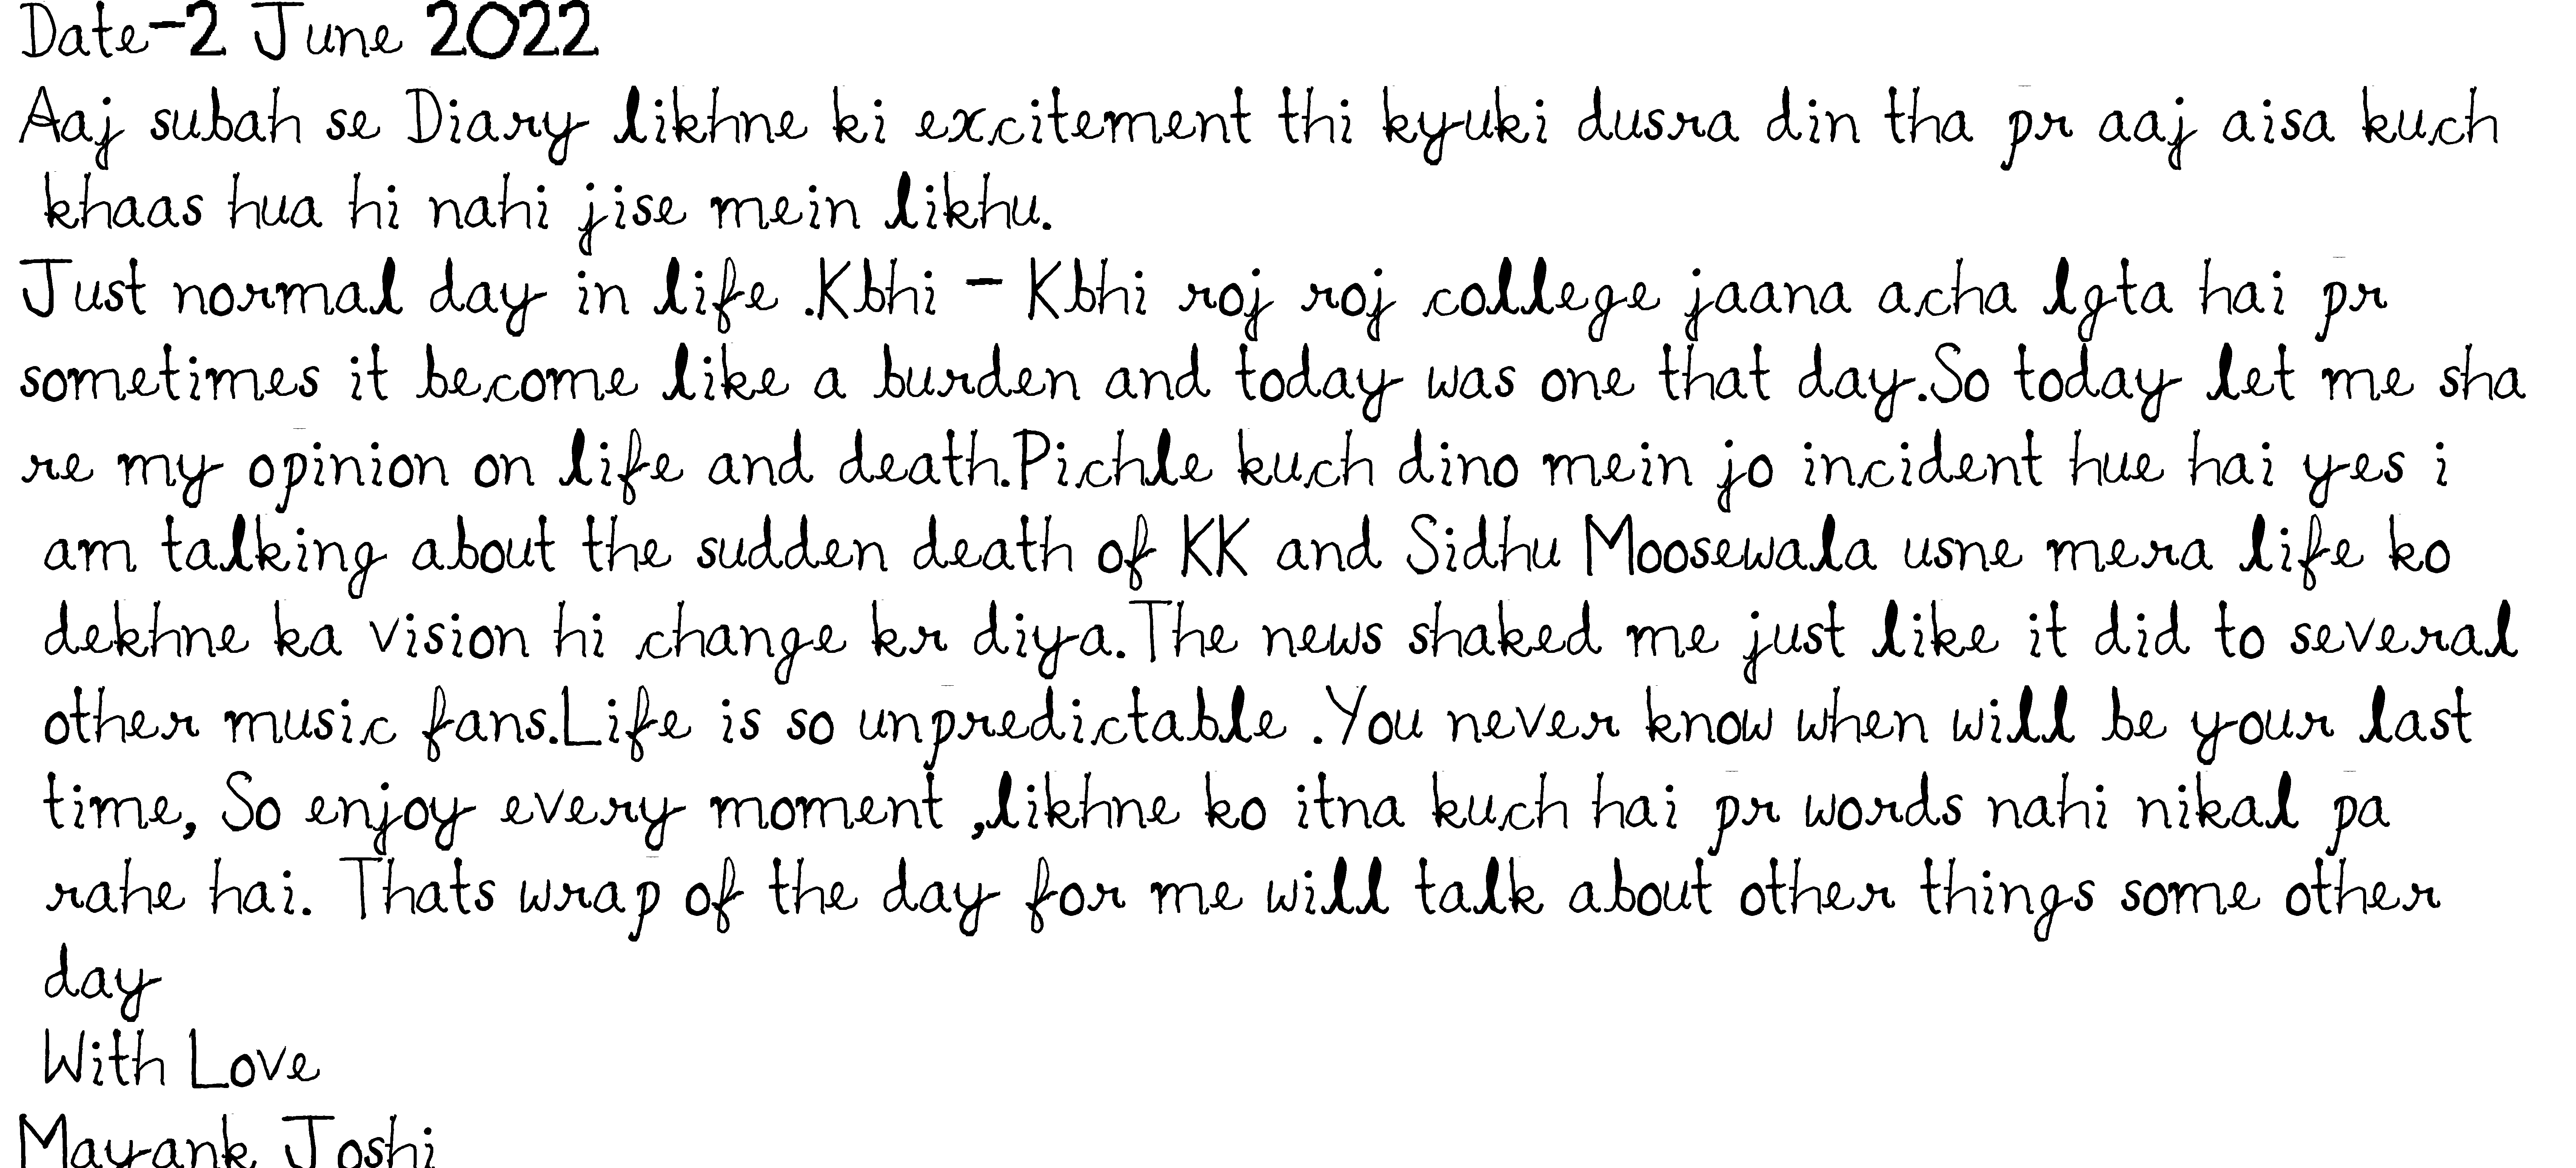 Date-2 June 2022
Aaj subah se Diary likhne ki excitement thi kyuki dusra din tha pr aaj aisa kuch
khaas hua hi nahi jise mein likhu.
Just normal day in life .Kbhi - Kbhi roj roj college jaana acha lgta hai pr
sometimes it become like a burden and today was one that day.So today let me sha
re my opinion on life and death.Pichle kuch dino mein jo incident hue hai yes i
am talking about the sudden death of KK and Sidhu Moosewala usne mera life ko
dekhne ka vision hi change kr diya.The news shaked me just like it did to several
other music fans.Life is so unpredictable .You never know when will be your last
time, So enjoy every moment ,likhne ko itna kuch hai pr words nahi nikal pa
rahe hai. Thats wrap of the day for me will talk about other things some other
day
With Love
Mayank Joshi